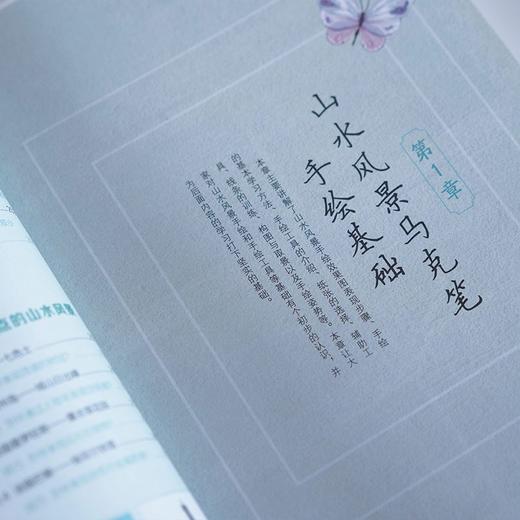 第1章
山水风景马克笔
手绘基础
本章主要讲解了山水风景手绘效果图表现步骤、手绘
的基本学习方法、手绘工具的介绍、纸张的选择、辅助工
具、线条的训练、构图与取景以及手绘姿势等。本章让大
家对山水风景手绘和手绘工具等基础有个初步的认识，并
为后面内容的学习打下坚实的基础。
点的山水风